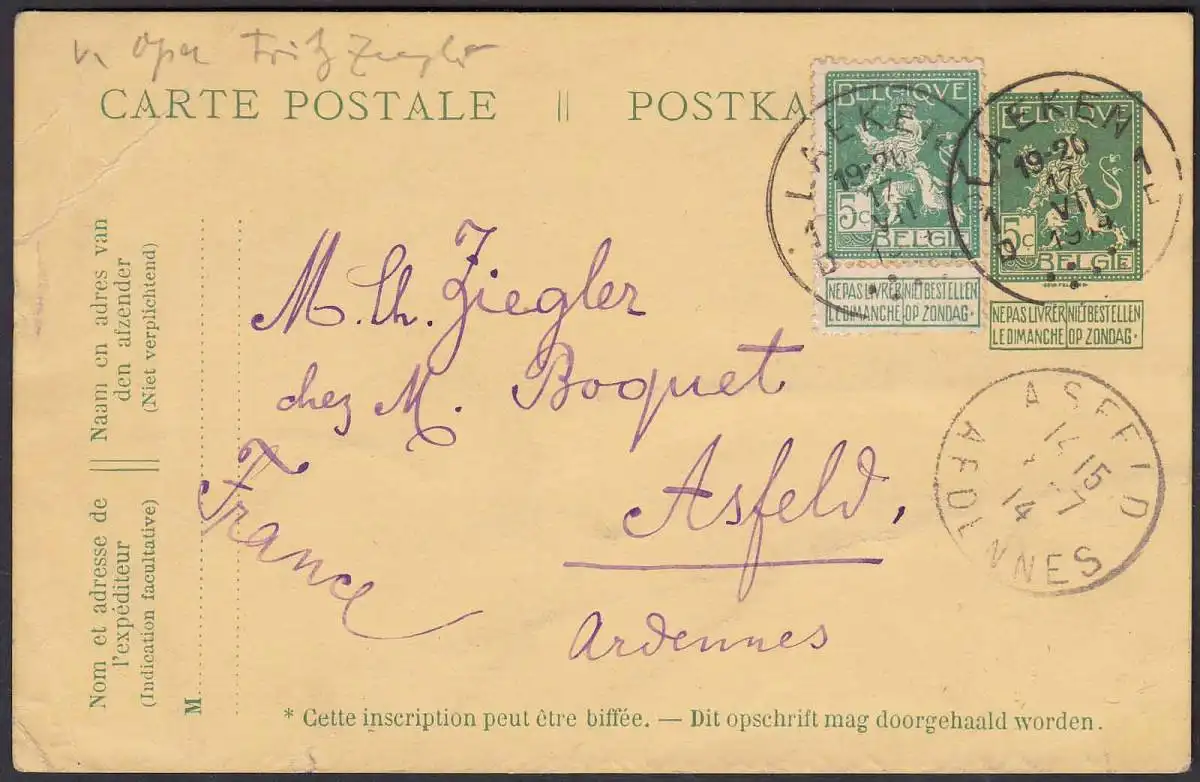 v. Opa Fritz Ziegler
CARTE POSTALE || POSTKA
BELGIQVE
5c
BELGIE
NE PAS LIVRER NIET BESTELLEN
LE DIMANCHE OP ZONDAG.
BELGIQVE
5c
BELGIE
NE PAS LIVRER NIET BESTELLEN
LE DIMANCHE OP ZONDAG.
LAEKEN
19-20
17
VII
1
LAEKEN 1
19-20
17
VII
1914
1 D
M. Ch. Ziegler
chez M. Boquet
Asfeld,
France
Ardennes
ASFELD
14 15
7
14
ARDENNES
Naam en adres van
den afzender
(Niet verplichtend)
Nom et adresse de
l'expéditeur
(Indication facultative)
M
* Cette inscription peut être biffée. — Dit opschrift mag doorgehaald worden.